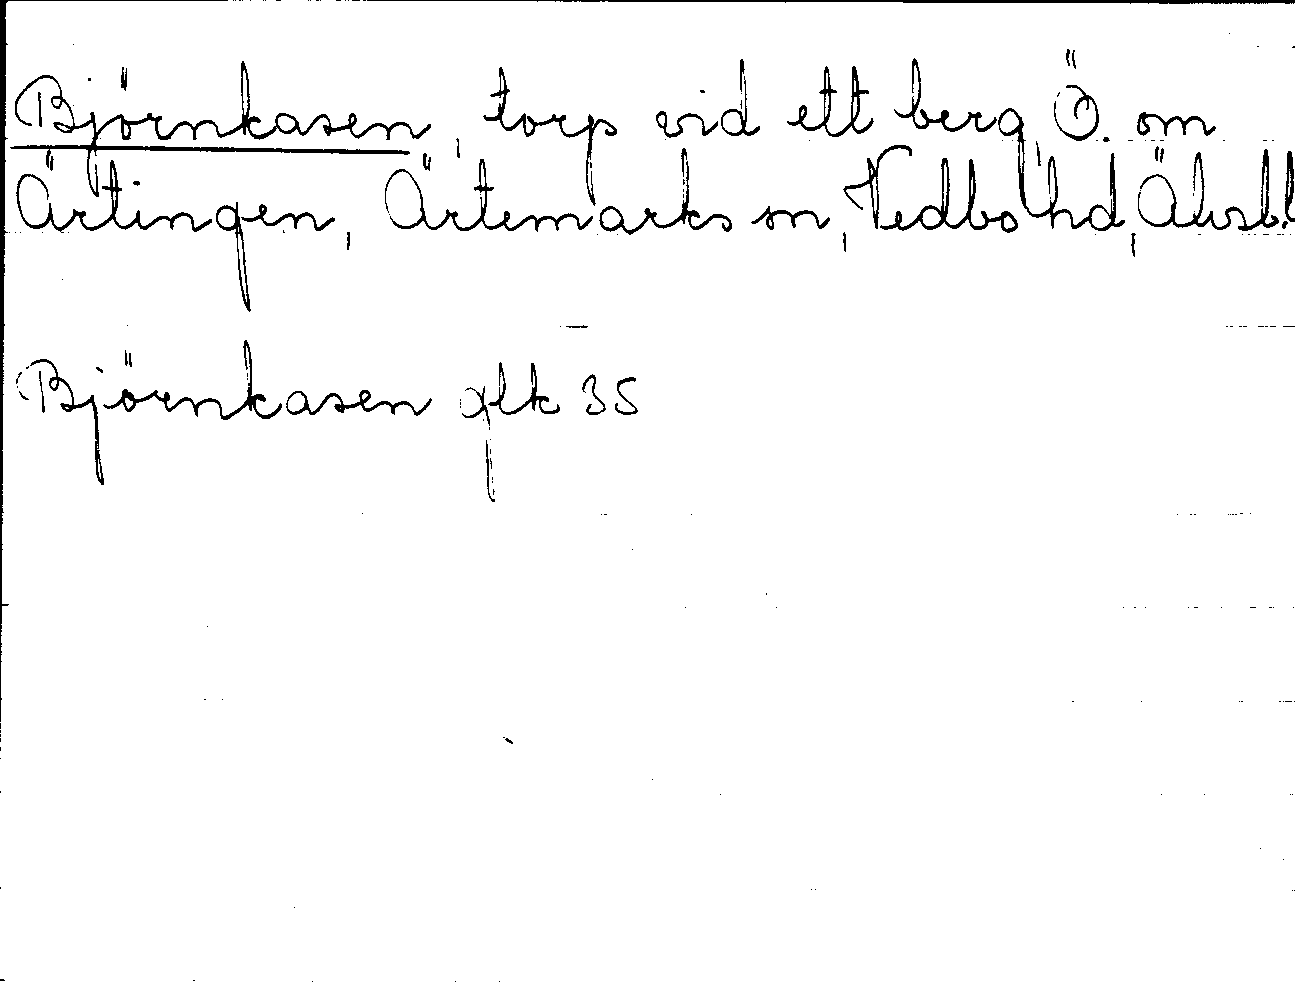 Björnkasen, torp vid ett berg Ö. om
Ärtingen, Ärtemarks sn, Vedbo hd, Älvsb.l
Björnkasen glk 35